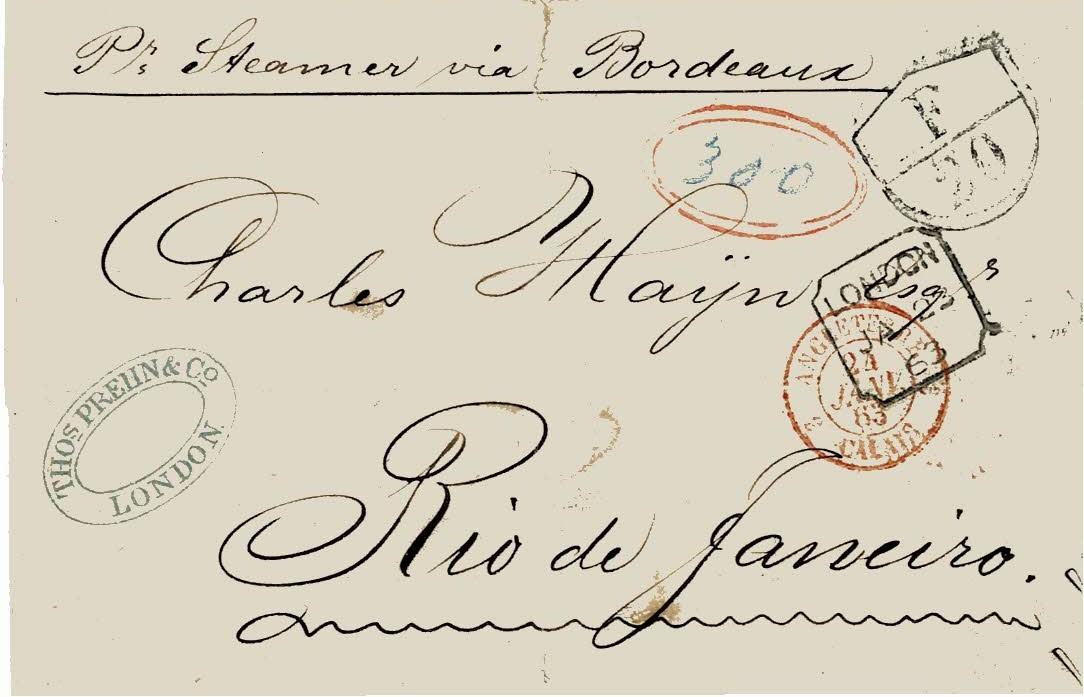 Pr. Steamer via Bordeaux
F
20
300
LONDON
JA 23
63
Charles Maÿn Esqr
ANGLETERRE
24
JANV
63
CALAIS
THOS PREHN & CO
LONDON
Rio de Janeiro.